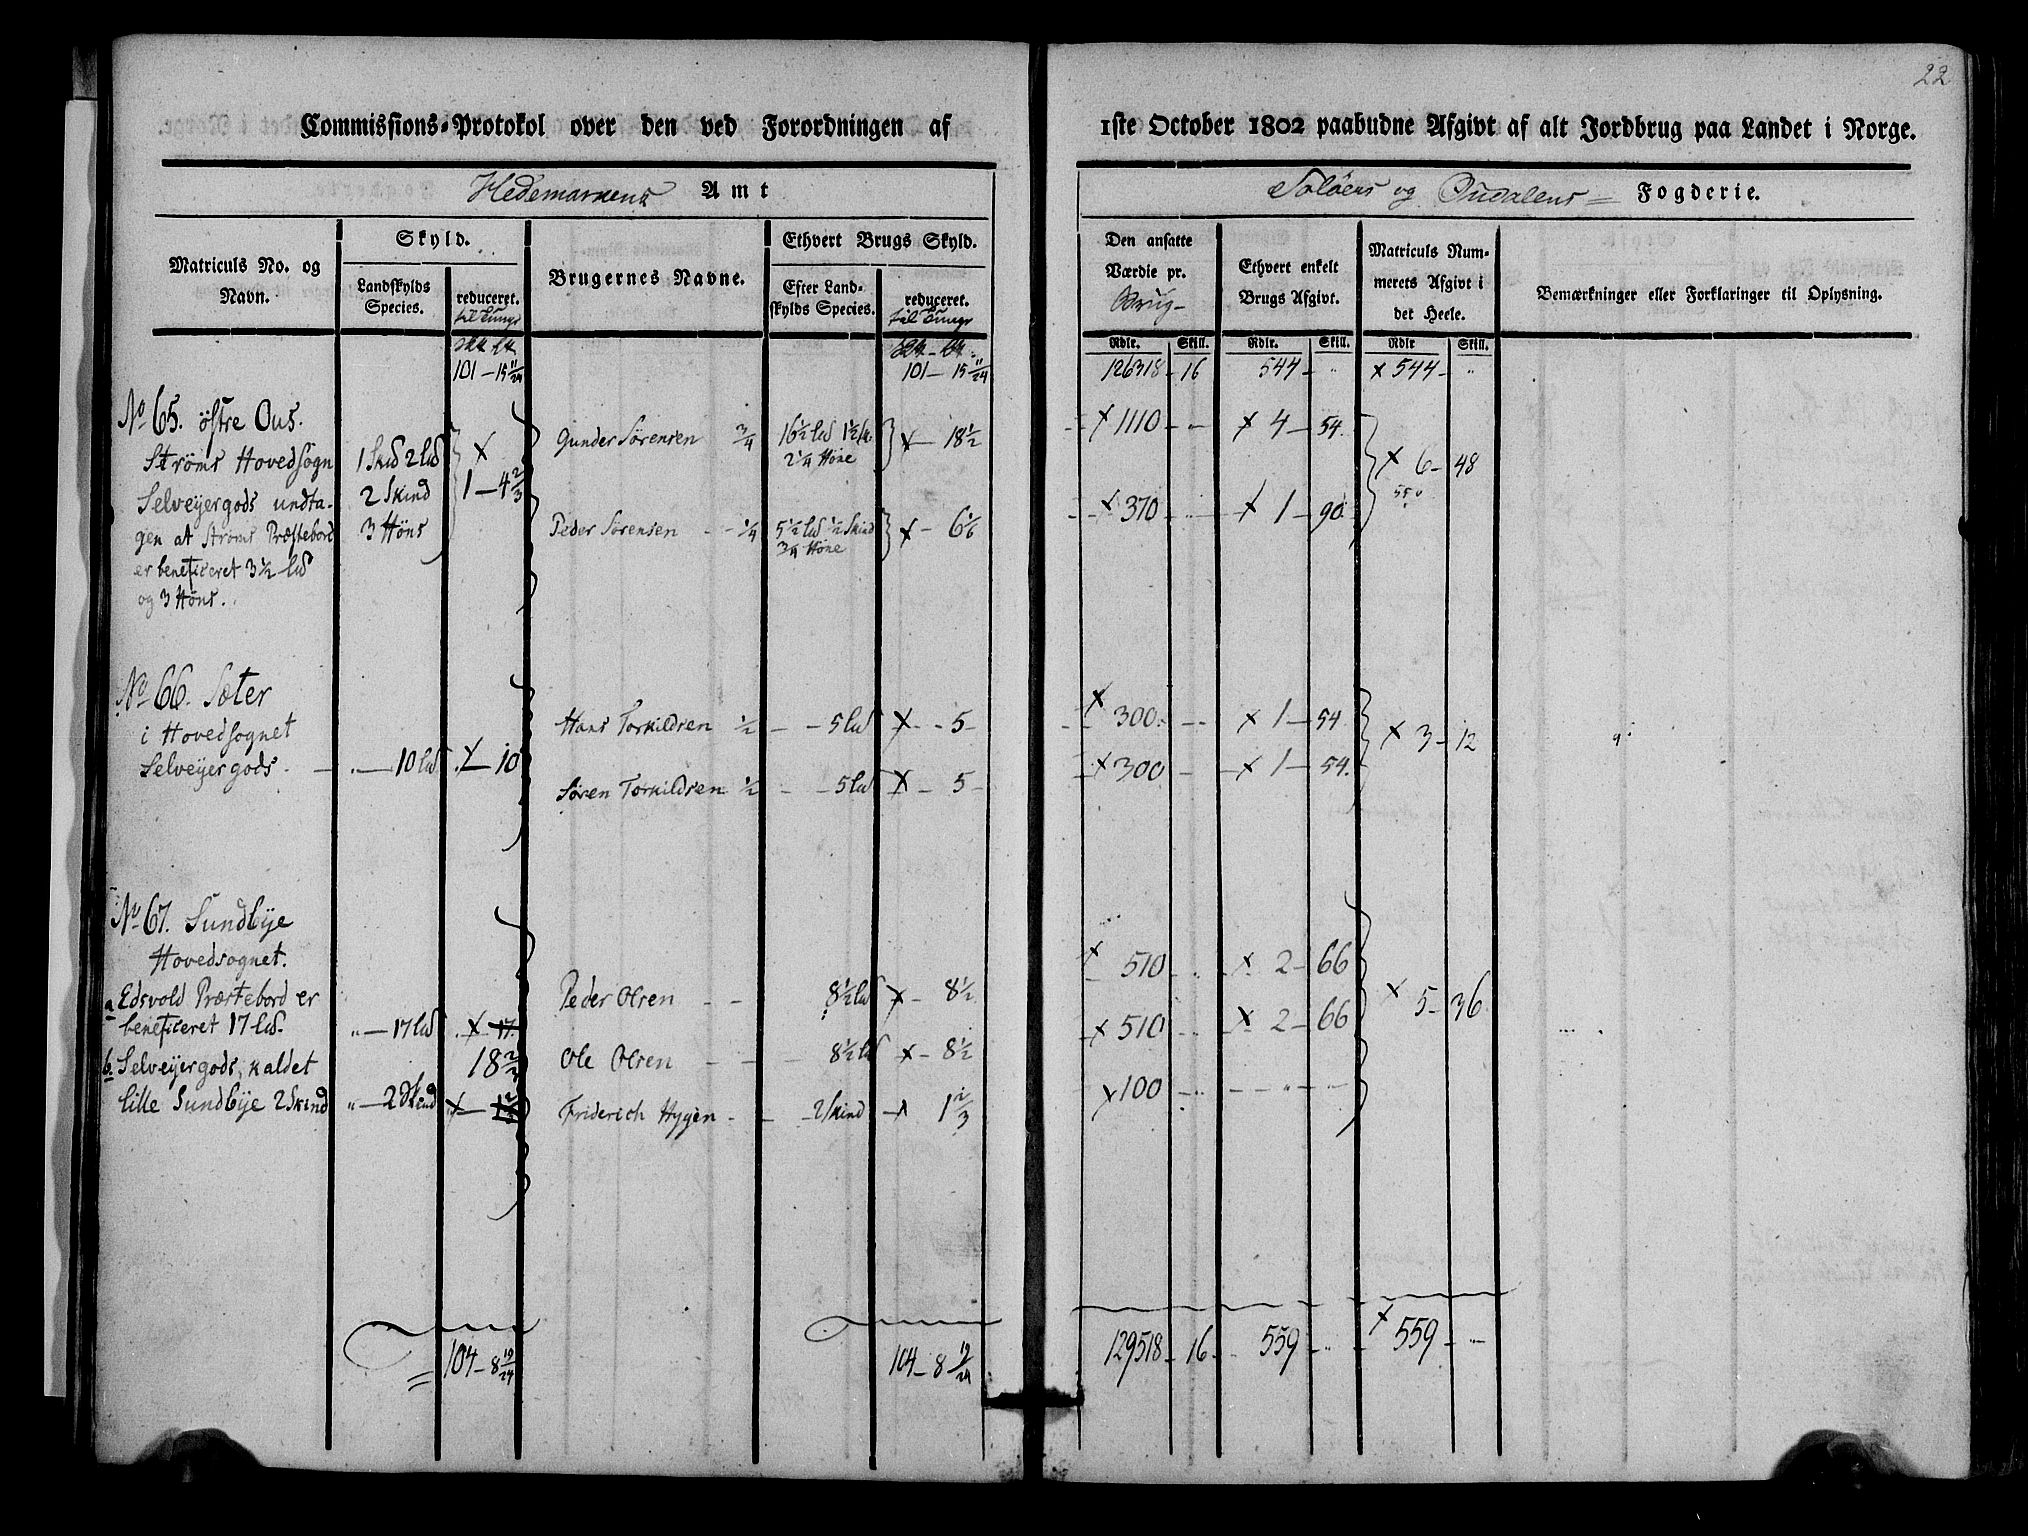 22
Commissions-Protokol over den ved Forordningen af 1ste October 1802 paabudne Afgivt af alt Jordbrug paa Landet i Norge.
Hedemarkens Amt
Soløers og Oudalens Fogderie.
Matriculs No. og Navn.
Skyld.
Landskylds Species.
reduceret.
til Tunge
Brugernes Navne.
Ethvert Brugs Skyld.
Efter Landskylds Species.
reduceret.
til Tunge
Den ansatte Værdie pr. Brug
Ethvert enkelt Brugs Afgivt.
Matriculs Nummerets Afgivt i det Heele.
Bemærkninger eller Forklaringer til Oplysning.
Rdlr. Skill. Rdlr. Skill. Rdlr Skill.
101 – 15 11/24 101 – 15 11/24 126318 – 16 544 – " x 544 – "
No 65. østre Ous.
Strøms Hovedsogn
Selveyergods undta-
gen at Strøms Præstebord
er beneficeret 3 1/2 lud
og 3 Høns.
1 Skud 2 lud
2 Skind
3 Høns
x
1 – 4 2/3
Gunder Sørensen 3/4 16 1/2 lud 1 1/2 sk. x – 18 1/2 x 1110 – x 4 – 54.
2 1/4 Høne
Peder Sørensen – 1/4 5 1/2 lud 1/2 Skind x – 6 1/6 x 370 – x 1 – 90
3/4 Høne
x 6 – 48
No 66. Sæter
i Hovedsognet
Selveyergods – 10 lud x – 10
Hans Torkildsen 1/2 – 5 lud x – 5 – x 300 – x 1 – 54
Søren Torkildsen 1/2 – 5 lud x – 5 – x 300 – x 1 – 54.
x 3 – 12
No 67. Sundbye
Hovedsognet.
a Edsvold Præstebord er
beneficeret 17 lud. " – 17 lud x – 17.
18 2/3
b. Selveyergods, kaldet
lille Sundbye 2 Skind " – 2 Skind x –
Peder Olsen – – 8 1/2 lud x – 8 1/2 x 510 – x 2 – 66
Ole Olsen – – 8 1/2 lud x – 8 1/2 x 510 – x 2 – 66
Friderich Hygen – – 2 Skind – x 1 2/3 x 100 – – " –
x 5 – 36
104 – 8 19/24 104 – 8 19/24 129518 – 16 559 – " x 559 – "